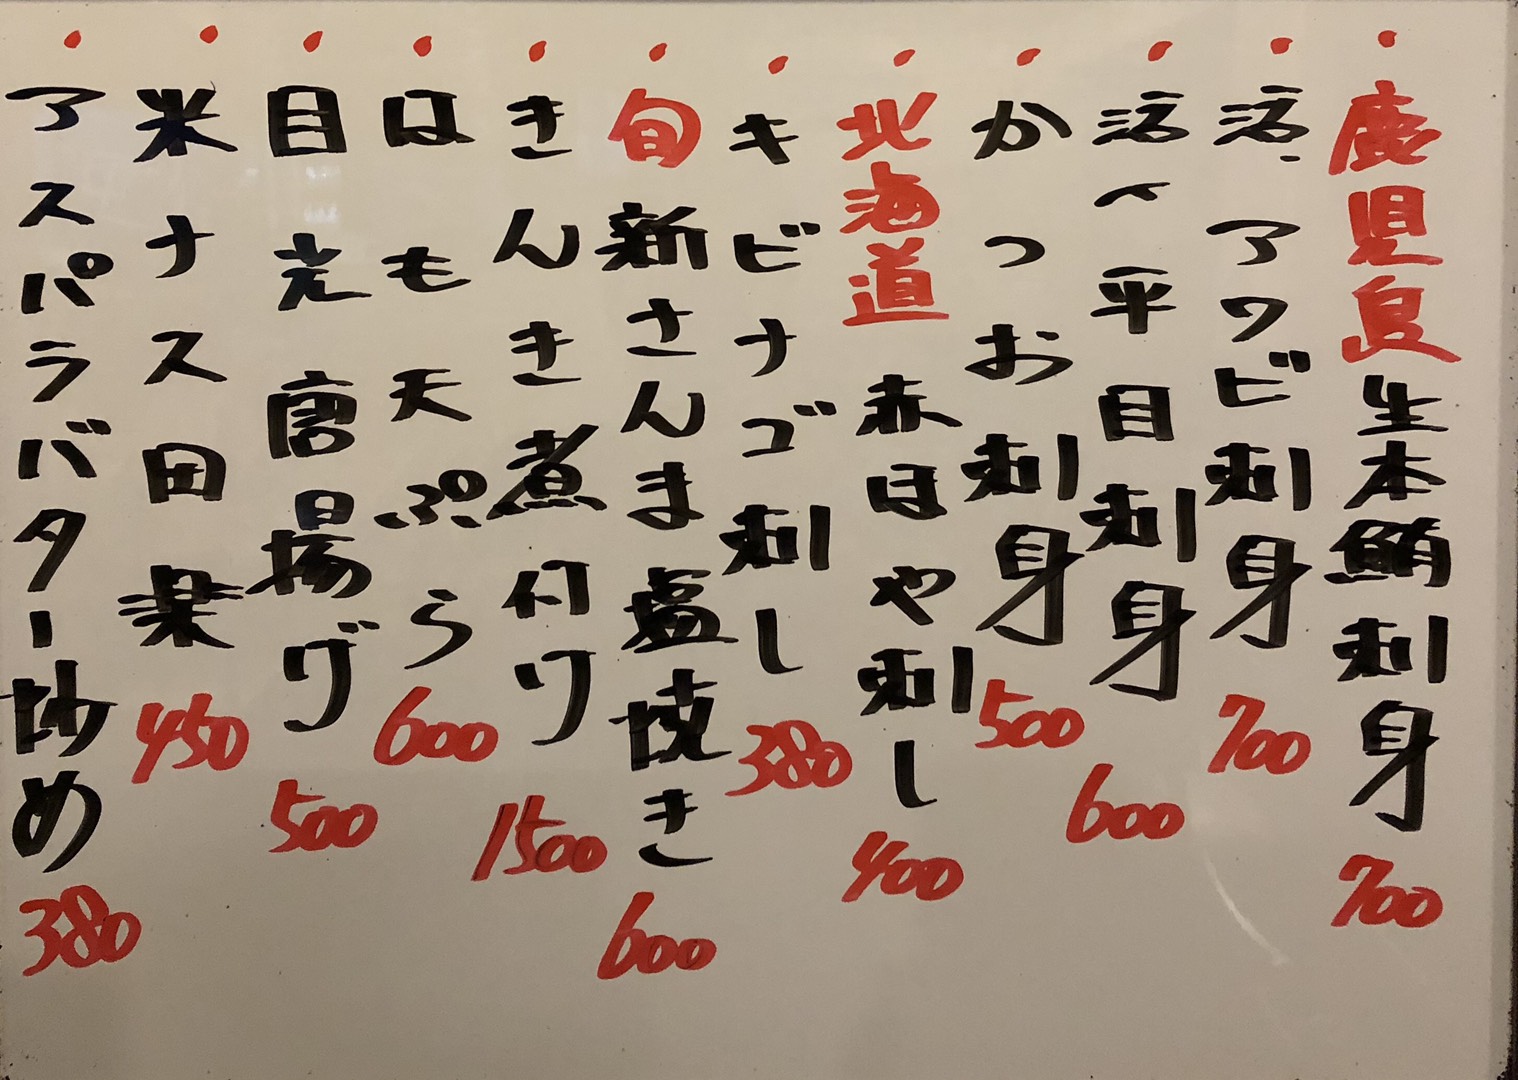 鹿児島生本鮪刺身 700
活、アワビ刺身 700
活〆平目刺身 600
かつお刺身 500
北海道 赤ほや刺し 400
キビナゴ刺し 380
旬 新さんま塩焼き 600
きんき煮付け 1500
はも天ぷら 600
目光唐揚げ 500
米ナス田楽 450
アスパラバター炒め 380